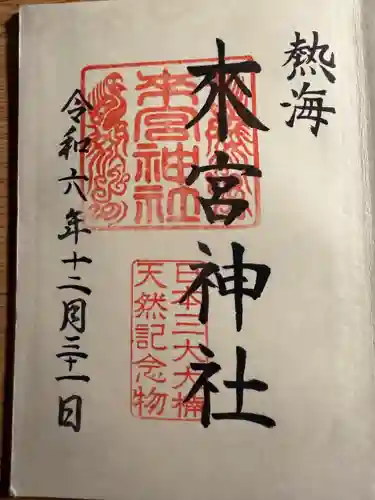 熱海
來宮神社
來宮神社
日本三大大楠
天然記念物
令和六年十二月三十一日